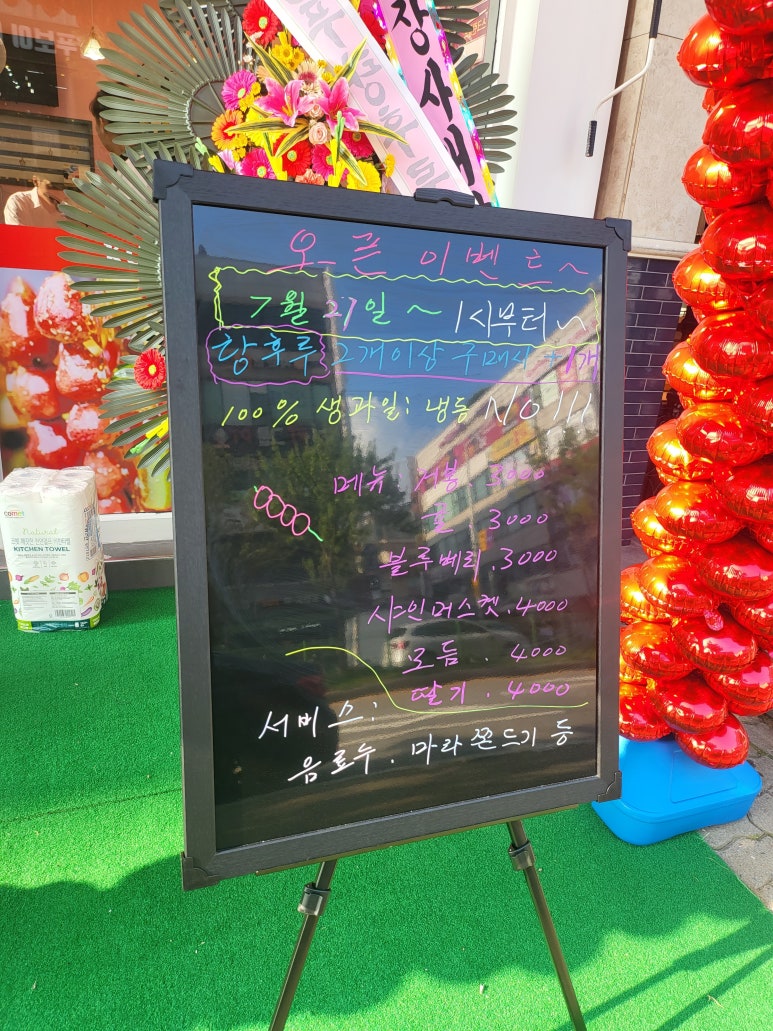 장사대
오픈 이벤트~
7월 27일 ~ 1시부터~
탕후루 2개이상 구매시 +1개
100% 생과일: 냉동 NO!!!
메뉴 3000
귤 3000
블루베리. 3000
샤인머스켓. 4000
모듬. 4000
딸기. 4000
서비스:
음료수. 마라쫀드기 등
comet
Natural
KITCHEN TOWEL